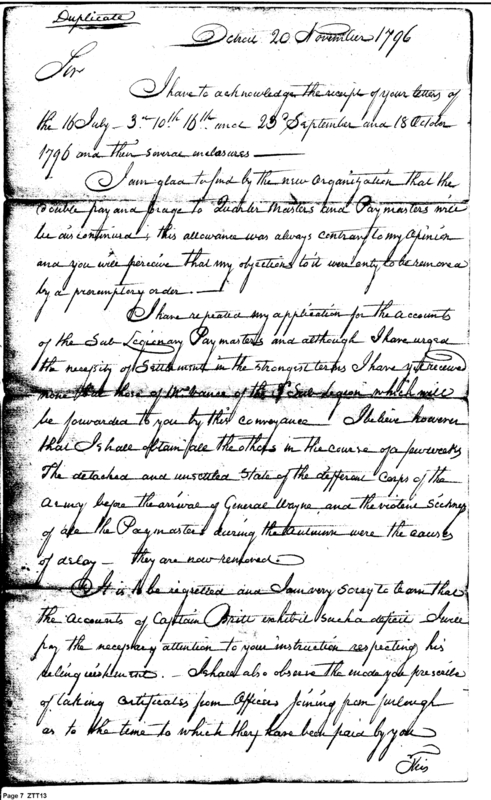 Duplicate
Detroit 20 November 1796
Sir
I have to acknowledge the receipt of your letters of
the 16 July - 3rd 10th 16th and 23d September and 18 October
1796 and their several enclosures -
I am glad to find by the new Organization that the
double pay and forage to Quarter Masters and Paymasters will
be discontinued; this allowance was always contrary to my Opinion
and you will perceive that my objections to it were only to be removed
by a preremptory order. -
I have repeated my application for the accounts
of the Sub-Legionary Paymasters and although I have urged
the necessity of Settlement in the strongest terms I have yet received
none but those of Mr Vance of the Sub Legion which will
be forwarded to you by this conveyance I believe however
that I shall obtain all the others in the course of a few weeks
The detached and unsettled State of the different Corps of the
Army before the arrival of General Wayne, and the violent Sickness
of all the Paymasters during the Autumn were the causes
of delay - they are now removed.
It is to be regretted and I am very sorry to learn that
the Accounts of Captain Britt exhibit such a deficit I will
pay the necessary attention to your instruction respecting his
relinquishment. - I shall also observe the mode you prescribe
of taking Certificates from Officers Joining from furlough
as to the time to which they have been paid by you
This
Page 7 ZTT13